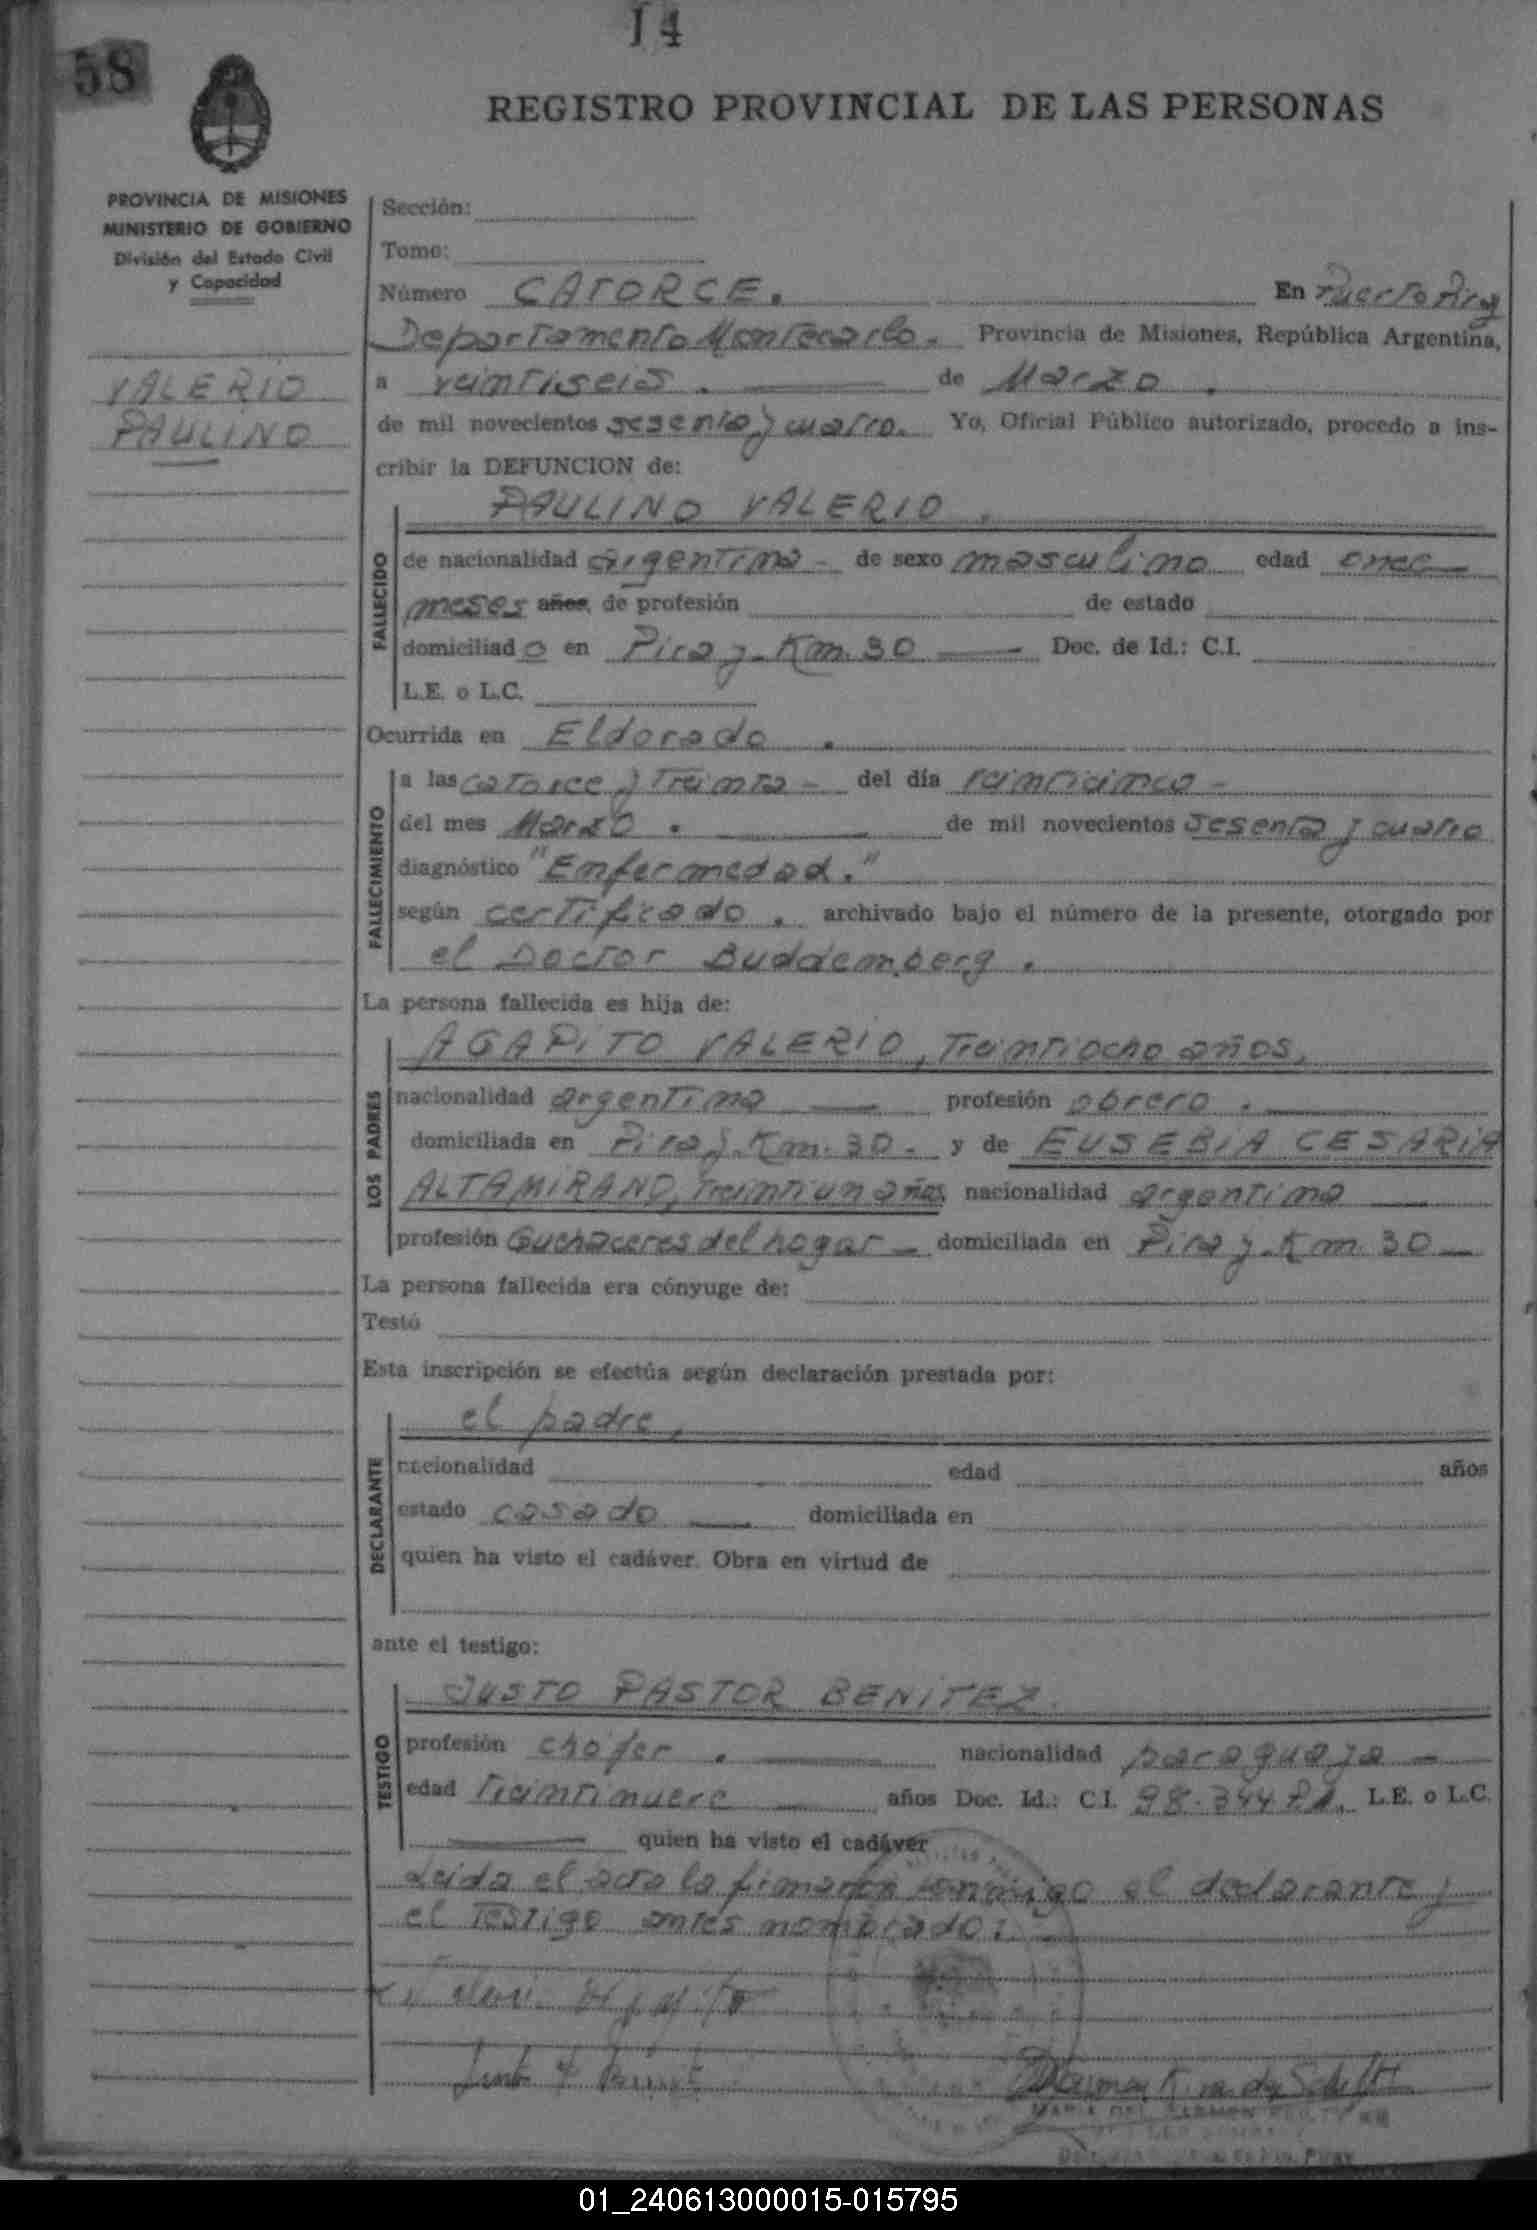 14
58
REGISTRO PROVINCIAL DE LAS PERSONAS
PROVINCIA DE MISIONES
MINISTERIO DE GOBIERNO
División del Estado Civil
y Capacidad
VALERIO
PAULINO
Sección:
Tomo:
Número CATORCE. En Puerto Piray
Departamento Montecarlo. Provincia de Misiones, República Argentina,
a veintiseis. de Marzo.
de mil novecientos sesenta y cuatro. Yo, Oficial Público autorizado, procedo a ins-
cribir la DEFUNCION de:
FALLECIDO
PAULINO VALERIO.
de nacionalidad argentina - de sexo masculino edad once
meses años, de profesión de estado
domiciliado en Piray - Km. 30 Doc. de Id.: C.I.
L.E. o L.C.
Ocurrida en Eldorado.
FALLECIMIENTO
a las catorce y treinta - del día veinticinco -
del mes Marzo. de mil novecientos sesenta y cuatro
diagnóstico "Enfermedad."
según certificado. archivado bajo el número de la presente, otorgado por
el Doctor Buddemberg.
La persona fallecida es hija de:
LOS PADRES
AGAPITO VALERIO, treintiocho años,
nacionalidad argentina profesión obrero.
domiciliada en Piray - Km. 30. y de EUSEBIA CESARIA
ALTAMIRANO, treintiun años, nacionalidad argentina
profesión Quehaceres del hogar - domiciliada en Piray - Km. 30
La persona fallecida era cónyuge de:
Testó
Esta inscripción se efectúa según declaración prestada por:
DECLARANTE
el padre,
nacionalidad edad años
estado casado domiciliada en
quien ha visto el cadáver. Obra en virtud de
ante el testigo:
TESTIGO
JUSTO PASTOR BENITEZ.
profesión chófer. nacionalidad paraguaya -
edad treintinueve años Doc. Id.: C.I. 98.344 L.E. o L.C.
quien ha visto el cadáver
Leida el acta la firmaron conmigo el declarante y
el testigo antes nombrado:
Agapito
MARIA DEL CARMEN
01_240613000015-015795